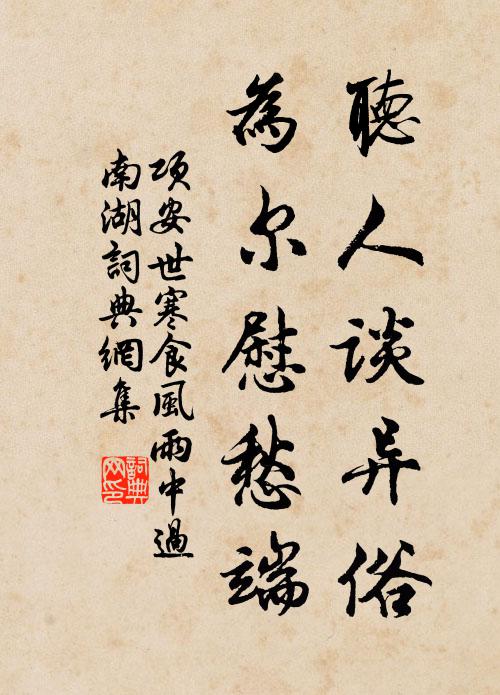 聽人談异俗
為尔慰愁端
項安世寒食風雨中過
南湖詞典網集
詞典
网印